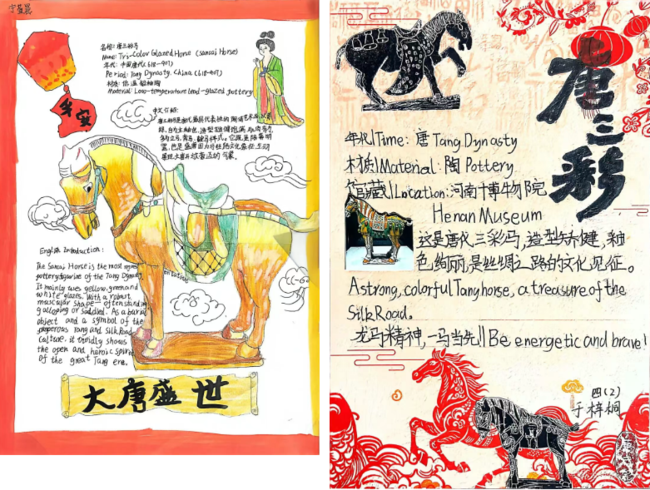 平安
名称: 唐三彩马
Name: Tri-Color Glazed Horse (Sancai Horse)
年代: 中国唐代 (618-907)
Period: Tang Dynasty, China (618-907)
材质: 低温铅釉陶
Material: Low-temperature lead-glazed pottery
中文介绍:
English Introduction:
The Sancai Horse is the most
pottery figurine of the Tang Dynasty.
It mainly uses yellow, green and
white glazes. With a robust
muscular shape — often standing
galloping or saddled. As a burial
object and a symbol of the
prosperous Tang and Silk Road
culture, it vividly shows
the open and heroic spirit
of the great Tang era.
大唐盛世
唐三彩
年代/Time: 唐 Tang Dynasty
材质/Material: 陶 Pottery
馆藏/Location: 河南博物院
Henan Museum
这是唐代三彩马,造型矫健,釉
色绚丽,是丝绸之路的文化见证。
A strong, colorful Tang horse, a treasure of the
Silk Road.
龙马精神,一马当先!/Be energetic and brave!
四(2)
于梓桐